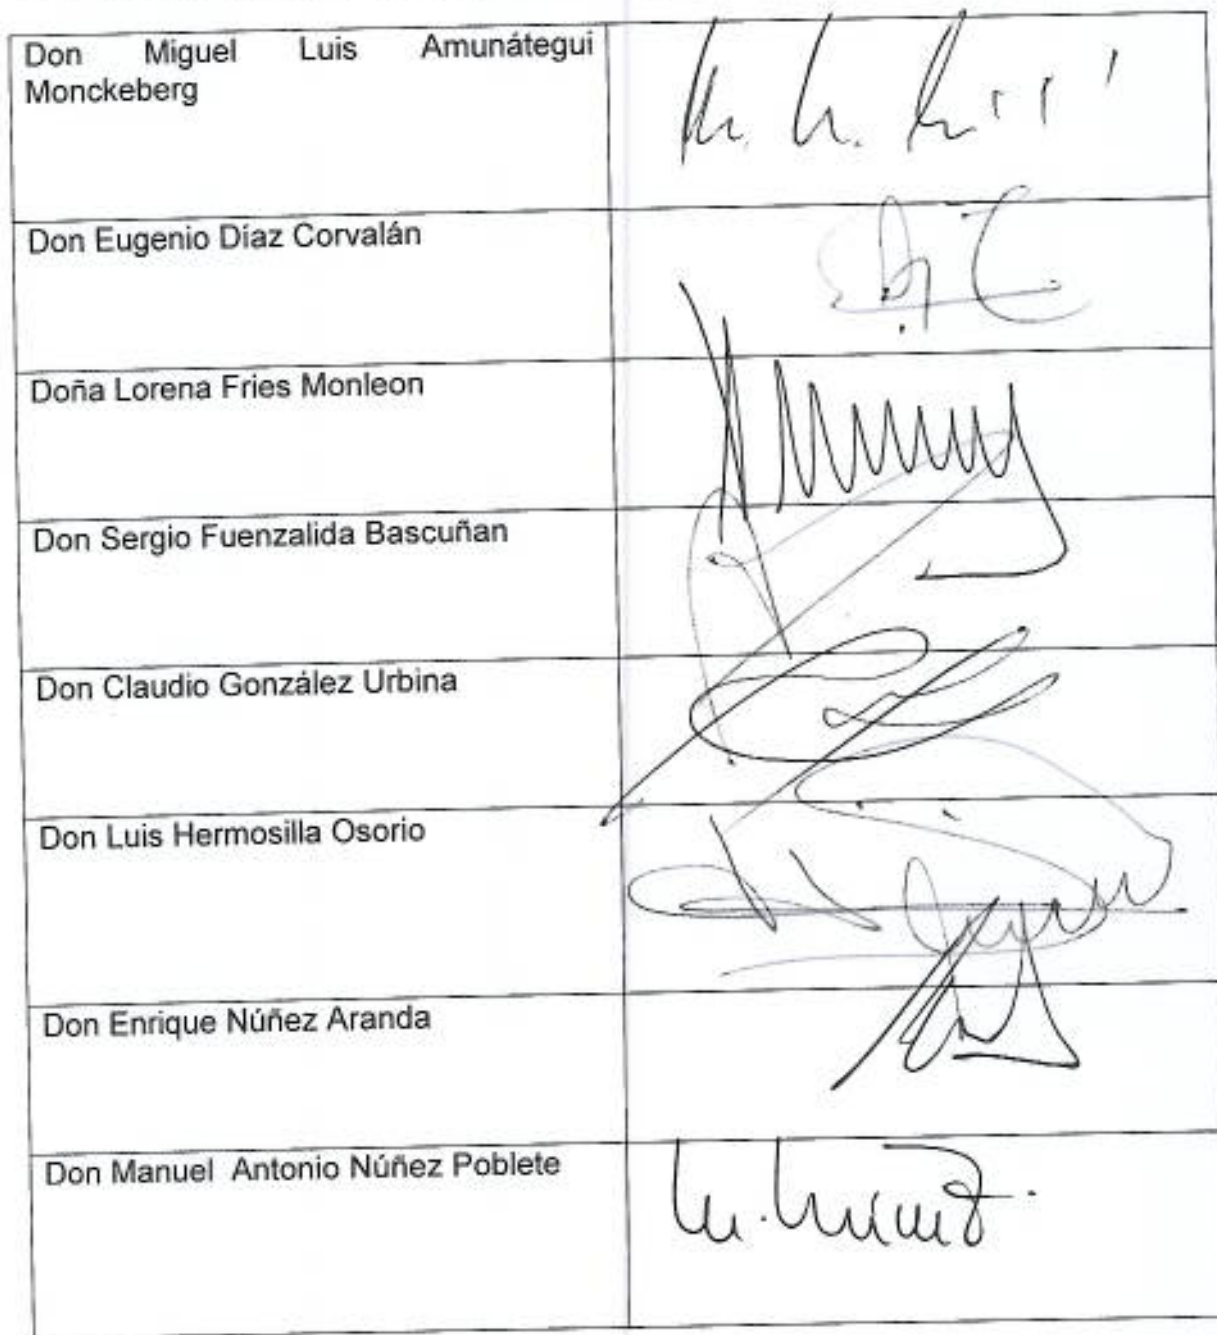 Don Miguel Luis Amunátegui
Monckeberg
Don Eugenio Díaz Corvalán
Doña Lorena Fries Monleon
Don Sergio Fuenzalida Bascuñan
Don Claudio González Urbina
Don Luis Hermosilla Osorio
Don Enrique Núñez Aranda
Don Manuel Antonio Núñez Poblete